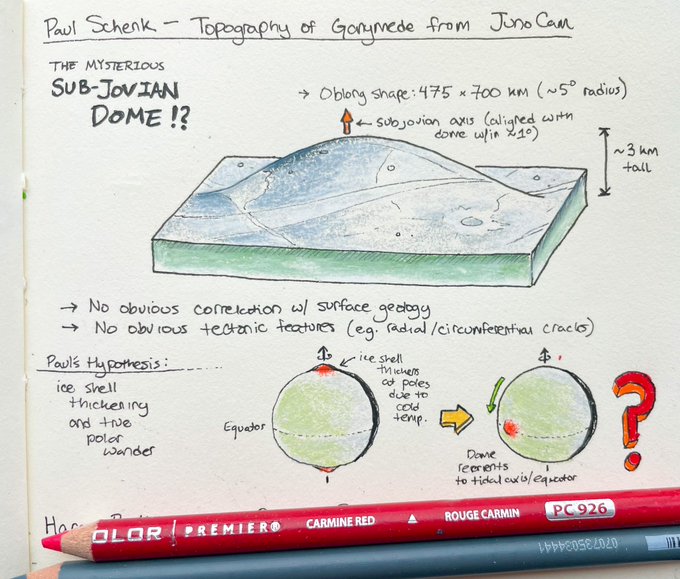 Paul Schenk — Topography of Ganymede from JunoCam
THE MYSTERIOUS
SUB-JOVIAN
DOME !?
→ Oblong shape: 475 × 700 km (~5° radius)
← subjovian axis (aligned with
dome w/in ~1°)
~3 km
tall
→ No obvious correlation w/ surface geology
→ No obvious tectonic features (eg. radial/circumferential cracks)
Paul's Hypothesis:
ice shell
thickening
and true
polar
wander
Equator
ice shell
thickens
at poles
due to
cold
temp.
Dome
reorients
to tidal axis/equator
?
OLOR PREMIER® CARMINE RED ROUGE CARMIN PC 926
070735034441